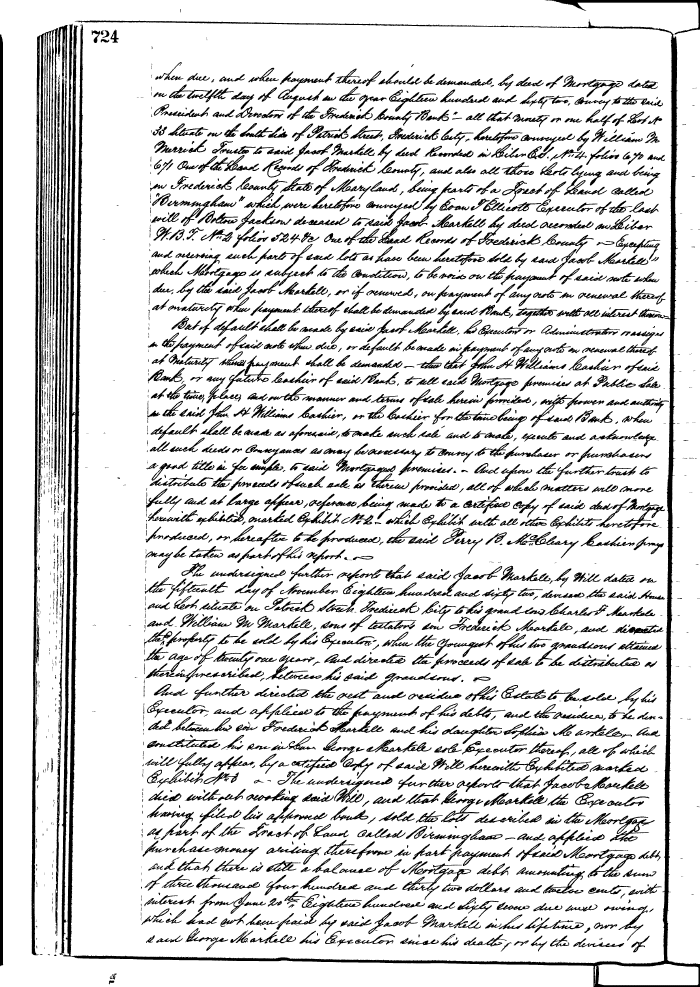 724
when due, and when payment thereof should be demanded, by deed of Mortgage dated
on the twelfth day of August in the year Eighteen hundred and sixty two, convey to the said
President and Directors of the Frederick County Bank "all that moiety or one half of Lot No
33 situate on the South side of Patrick Street, Frederick City, heretofore conveyed by William M
Merrick Trustee to said Jacob Markell by deed Recorded in Liber No. 4 folios 670 and
671 One of the Land Records of Frederick County, and also all those Lots lying and being
in Frederick County State of Maryland, being parts of a Tract of Land called
"Birmingham" which were heretofore conveyed by Evan T Ellicott Executor of the last
will of Bolton Jackson deceased to said Jacob Markell by deed recorded in Liber
W. B. T. No. 2 folios 524 &c One of the Land Records of Frederick County - Excepting
and reserving such parts of said lots as have been heretofore sold by said Jacob Markell"
which Mortgage is subject to the Condition, to be void on the payment of said note when
due, by the said Jacob Markell, or if renewed, on payment of any note in renewal thereof
at maturity when payment thereof shall be demanded by said Bank, together with all interest thereon
But if default shall be made by said Jacob Markell, his Executor or Administrator or assigns
in the payment of said note when due, or default be made in payment of any note in renewal thereof
at Maturity when payment shall be demanded - then that John H Williams Cashier of said
Bank, or any future Cashier of said Bank, to sell said Mortgage premises at Public Sale
at the time, place, and on the manner and terms of sale herein provided, with power and authority
in the said John H Williams Cashier, or the Cashier for the time being of said Bank, when
default shall be made as aforesaid, to make such sale and to make, execute and acknowledge
all such deeds or conveyances as may be necessary to convey to the purchaser or purchasers
a good title in fee simple, to said Mortgaged premises. - And upon the further trust to
distribute the proceeds of such sale as therein provided, all of which matters will more
fully and at large appear, reference being made to a certified copy of said deed of Mortgage
herewith exhibited, marked Exhibit No. 2 - which Exhibit with all other Exhibits heretofore
produced, or hereafter to be produced, the said Perry B. McCleary Cashier prays
may be taken as part of his report. -
The undersigned further reports that said Jacob Markell, by Will dated on
the fifteenth day of November Eighteen hundred and sixty two, devised the said House
and Lot situate on Patrick Street Frederick City to his grand sons Charles F Markell
and William M Markell, sons of testators son Frederick Markell, and directed
the property to be sold by his Executor, when the youngest of his two grandsons attained
the age of twenty one years, And directed the proceeds of sale to be distributed as
therein prescribed, between his said grandsons. -
And further directed the rest and residue of his Estate to be sold by his
Executor, and applied to the payment of his debts, and the residue, to be divi-
ded between his son Frederick Markell and his daughter Sophia Markell. And
constituted his son in law George Markell sole Executor thereof, all of which
will fully appear, by a certified Copy of said Will herewith Exhibited marked
Exhibit No. 3 - The undersigned further reports that Jacob Markell
died without revoking said Will, and that George Markell the Executor
having filed his approved bond, sold the lots described in the Mortgage
as part of the Tract of Land called Birmingham - and applied the
purchase money arising therefrom in part payment of said Mortgage debt,
and that there is still a balance of Mortgage debt amounting to the sum
of three thousand four hundred and thirty two dollars and twelve cents, with
interest from June 20th, Eighteen hundred and sixty seven due and owing,
which had not been paid by said Jacob Markell in his lifetime, nor by
said George Markell his Executor since his death, or by the devisees of